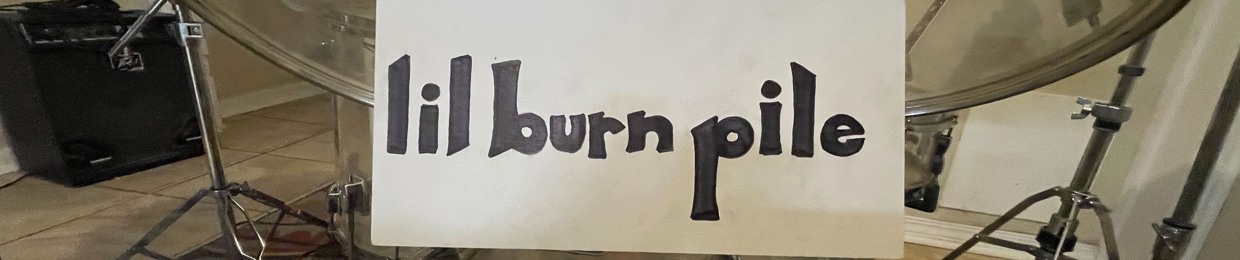 lil burn pile